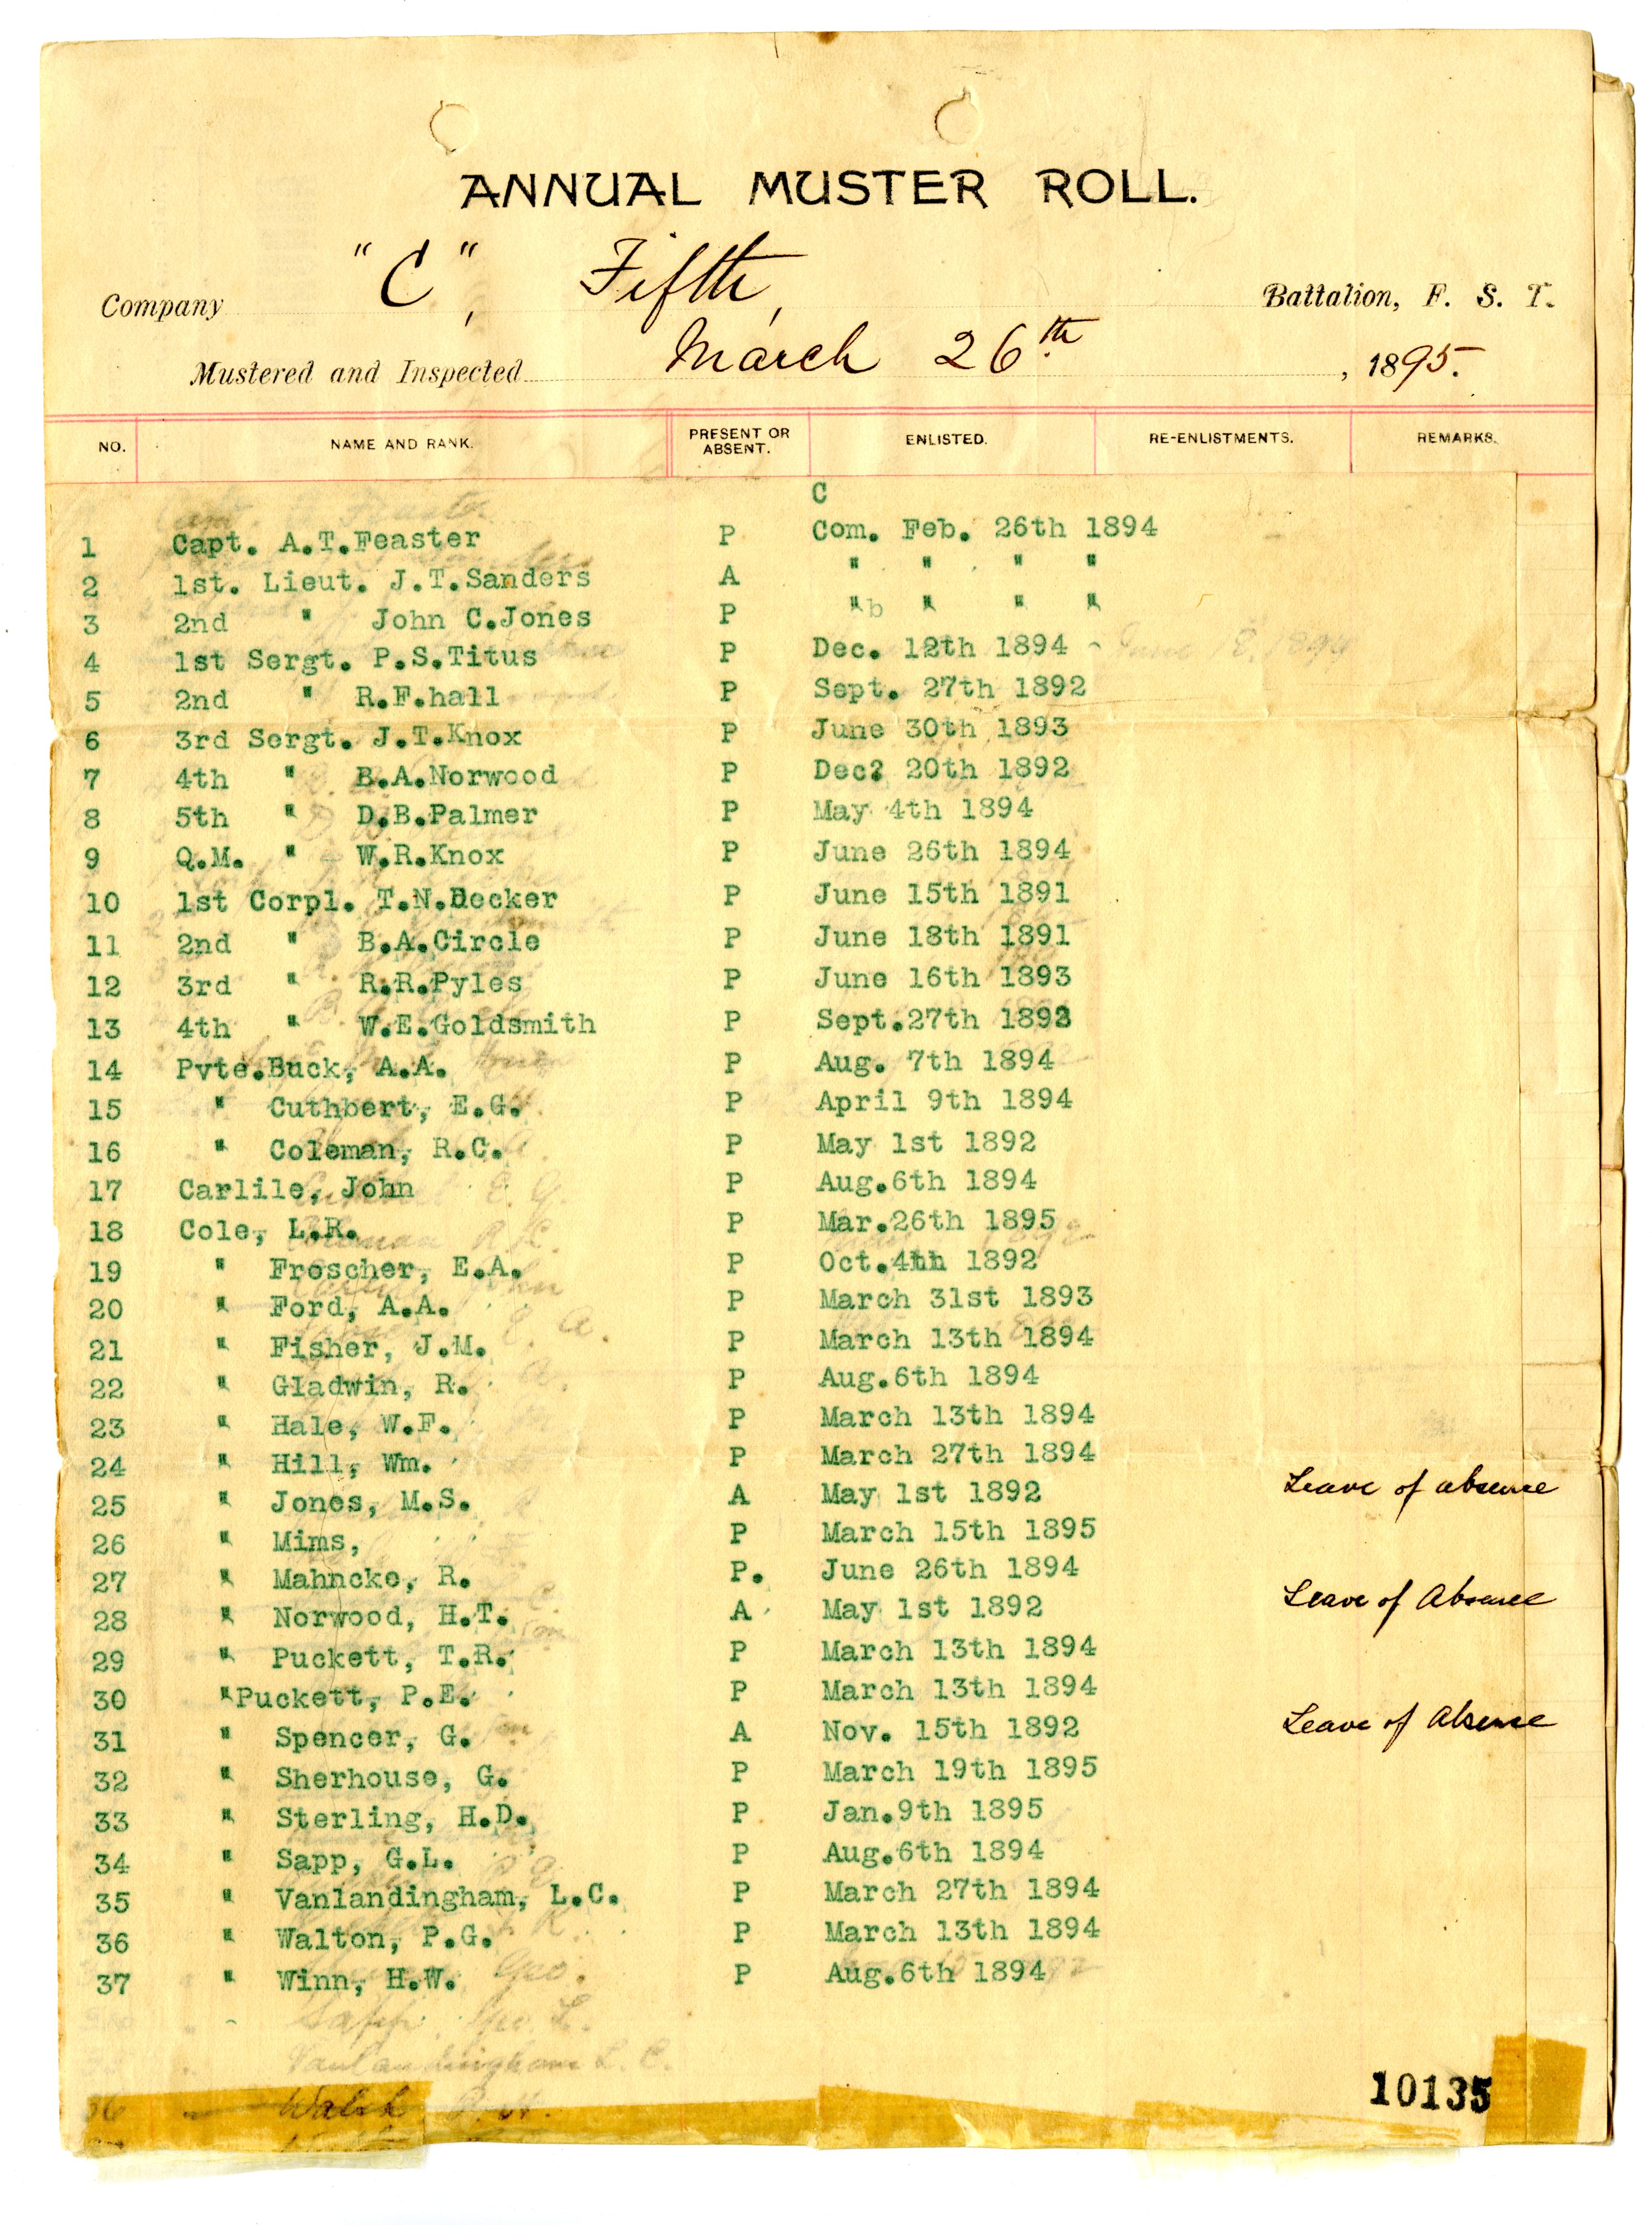 ANNUAL MUSTER ROLL.
Company "C", Fifth, Battalion, F. S. T.
Mustered and Inspected March 26th. , 1895.
NO. NAME AND RANK. PRESENT OR ABSENT. ENLISTED. RE-ENLISTMENTS. REMARKS.
C
1 Capt. A.T.Feaster P Com. Feb. 26th 1894
2 1st. Lieut. J.T.Sanders A " " " "
3 2nd " John C.Jones P "b " " "
4 1st Sergt. P.S.Titus P Dec. 12th 1894 - June 18, 1894
5 2nd " R.F.hall P Sept. 27th 1892
6 3rd Sergt. J.T.Knox P June 30th 1893
7 4th " B.A.Norwood P Dec? 20th 1892
8 5th " D.B.Palmer P May 4th 1894
9 Q.M. " W.R.Knox P June 26th 1894
10 1st Corpl. T.N.Decker P June 15th 1891
11 2nd " B.A.Circle P June 18th 1891
12 3rd " R.R.Pyles P June 16th 1893
13 4th " W.E.Goldsmith P Sept.27th 1892
14 Pvte.Buck, A.A. P Aug. 7th 1894
15 " Cuthbert, E.G. P April 9th 1894
16 " Coleman, R.C. P May 1st 1892
17 Carlile, John P Aug.6th 1894
18 Cole, L.R. P Mar.26th 1895
19 " Froscher, E.A. P Oct.4th 1892
20 " Ford, A.A. P March 31st 1893
21 " Fisher, J.M. P March 13th 1894
22 " Gladwin, R. P Aug.6th 1894
23 " Hale, W.F. P March 13th 1894
24 " Hill, Wm. P March 27th 1894
25 " Jones, M.S. A May 1st 1892 Leave of absence
26 " Mims, P March 15th 1895
27 " Mahncke, R. P. June 26th 1894
28 " Norwood, H.T. A May 1st 1892 Leave of Absence
29 " Puckett, T.R. P March 13th 1894
30 "Puckett, P.E. P March 13th 1894
31 " Spencer, G. A Nov. 15th 1892 Leave of Absence
32 " Sherhouse, G. P March 19th 1895
33 " Sterling, H.D. P Jan.9th 1895
34 " Sapp, G.L. P Aug.6th 1894
35 " Vanlandingham, L.C. P March 27th 1894
36 " Walton, P.G. P March 13th 1894
37 " Winn, H.W. P Aug.6th 1894
Sapp, Geo. L.
Vanlandingham L. C.
36
10135